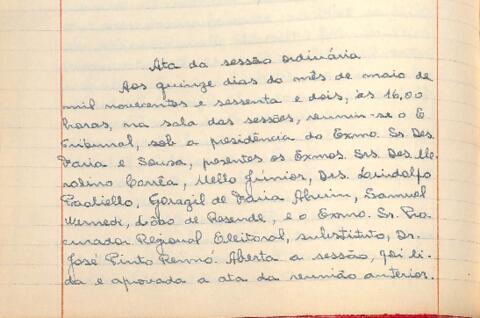 Ata da sessão ordinária
Aos quinze dias do mês de maio de
mil novecentos e sessenta e dois, às 16,00
horas, na sala das sessões, reuniu-se o E.
Tribunal, sob a presidência do Exmo. Sr. Des.
Faria e Sousa, presentes os Exmos. Srs. Des. Me-
rolino Corrêa, Mello Júnior, Drs. Lindolfo
Paoliello, de Faria Alvim, Samuel
Werneck, Lôbo de Resende, e o Exmo. Sr. Pro-
curador Regional Eleitoral, substituto, Dr.
José Pinto Rennó. Aberta a sessão, foi li-
da e aprovada a ata da reunião anterior.